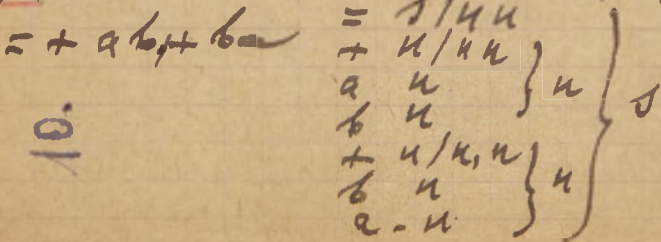 = + ab, + ba
= s/nn
+ n/nn
a n
b n
} n
+ n/n,n
b n
a - n
} n
} s
10.